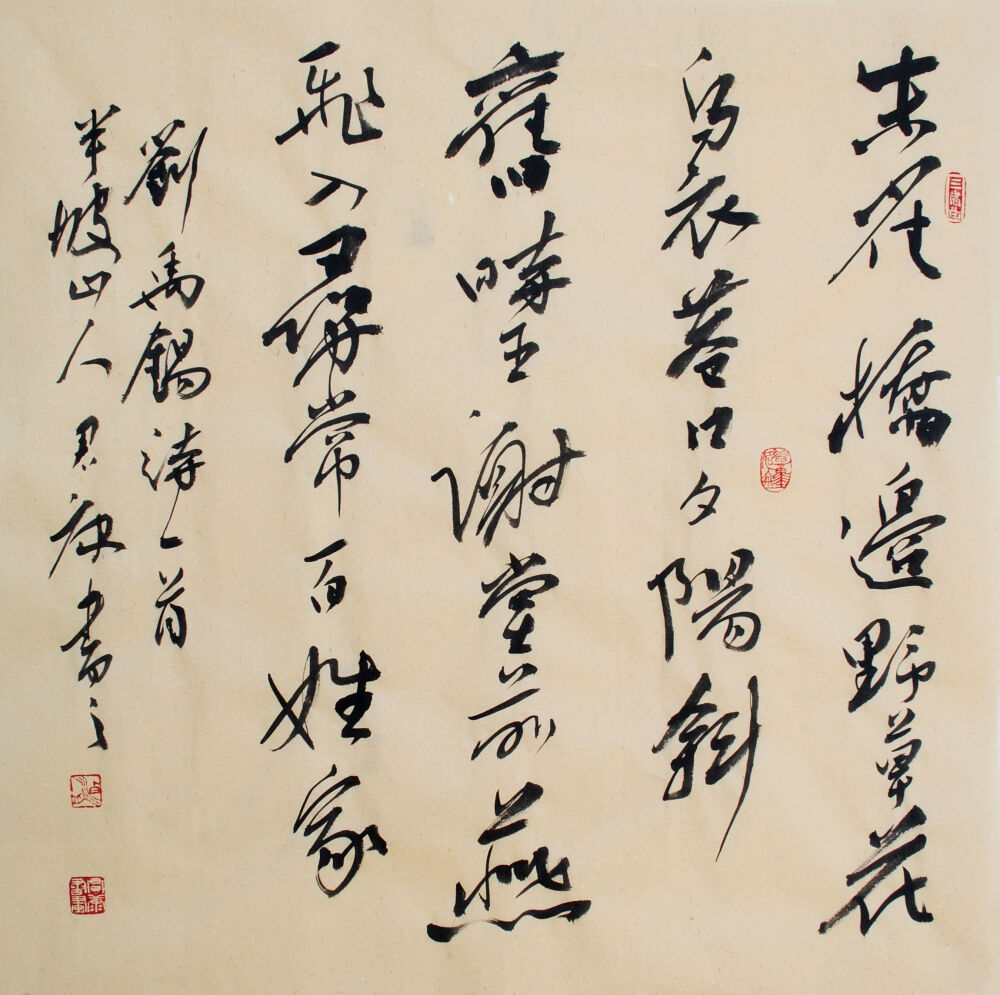 朱雀橋邊野草花
烏衣巷口夕陽斜
舊時王謝堂前燕
飛入尋常百姓家
劉禹錫詩一首
半坡山人君康書之